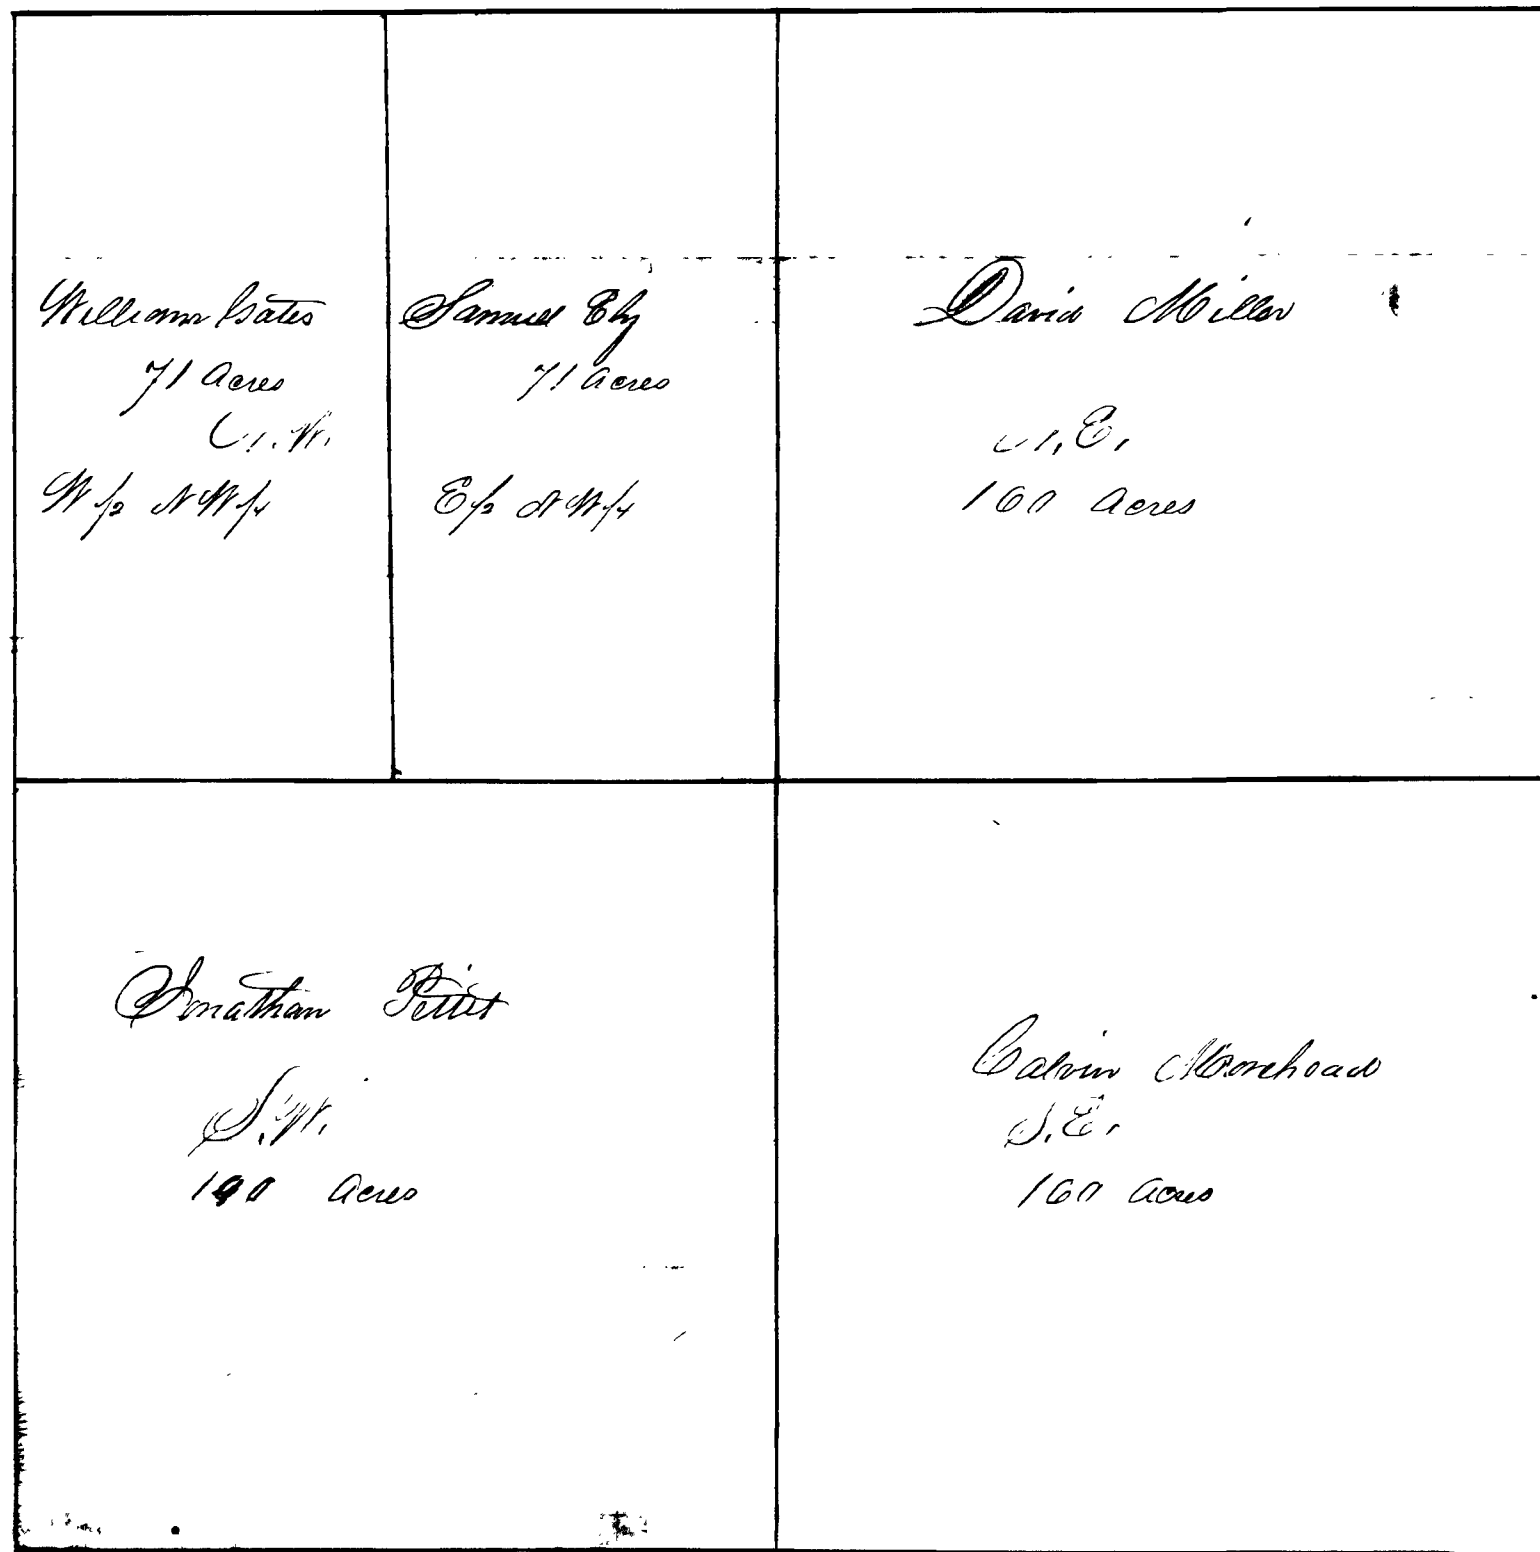 William Bates
71 Acres
N.W.
W 1/2 N W 1/4
Samuel Ely
71 Acres
E 1/2 N W 1/4
David Miller
N.E.
160 Acres
Jonathan Pettit
S.W.
Acres
Calvin Morehead
S.E.
160 Acres